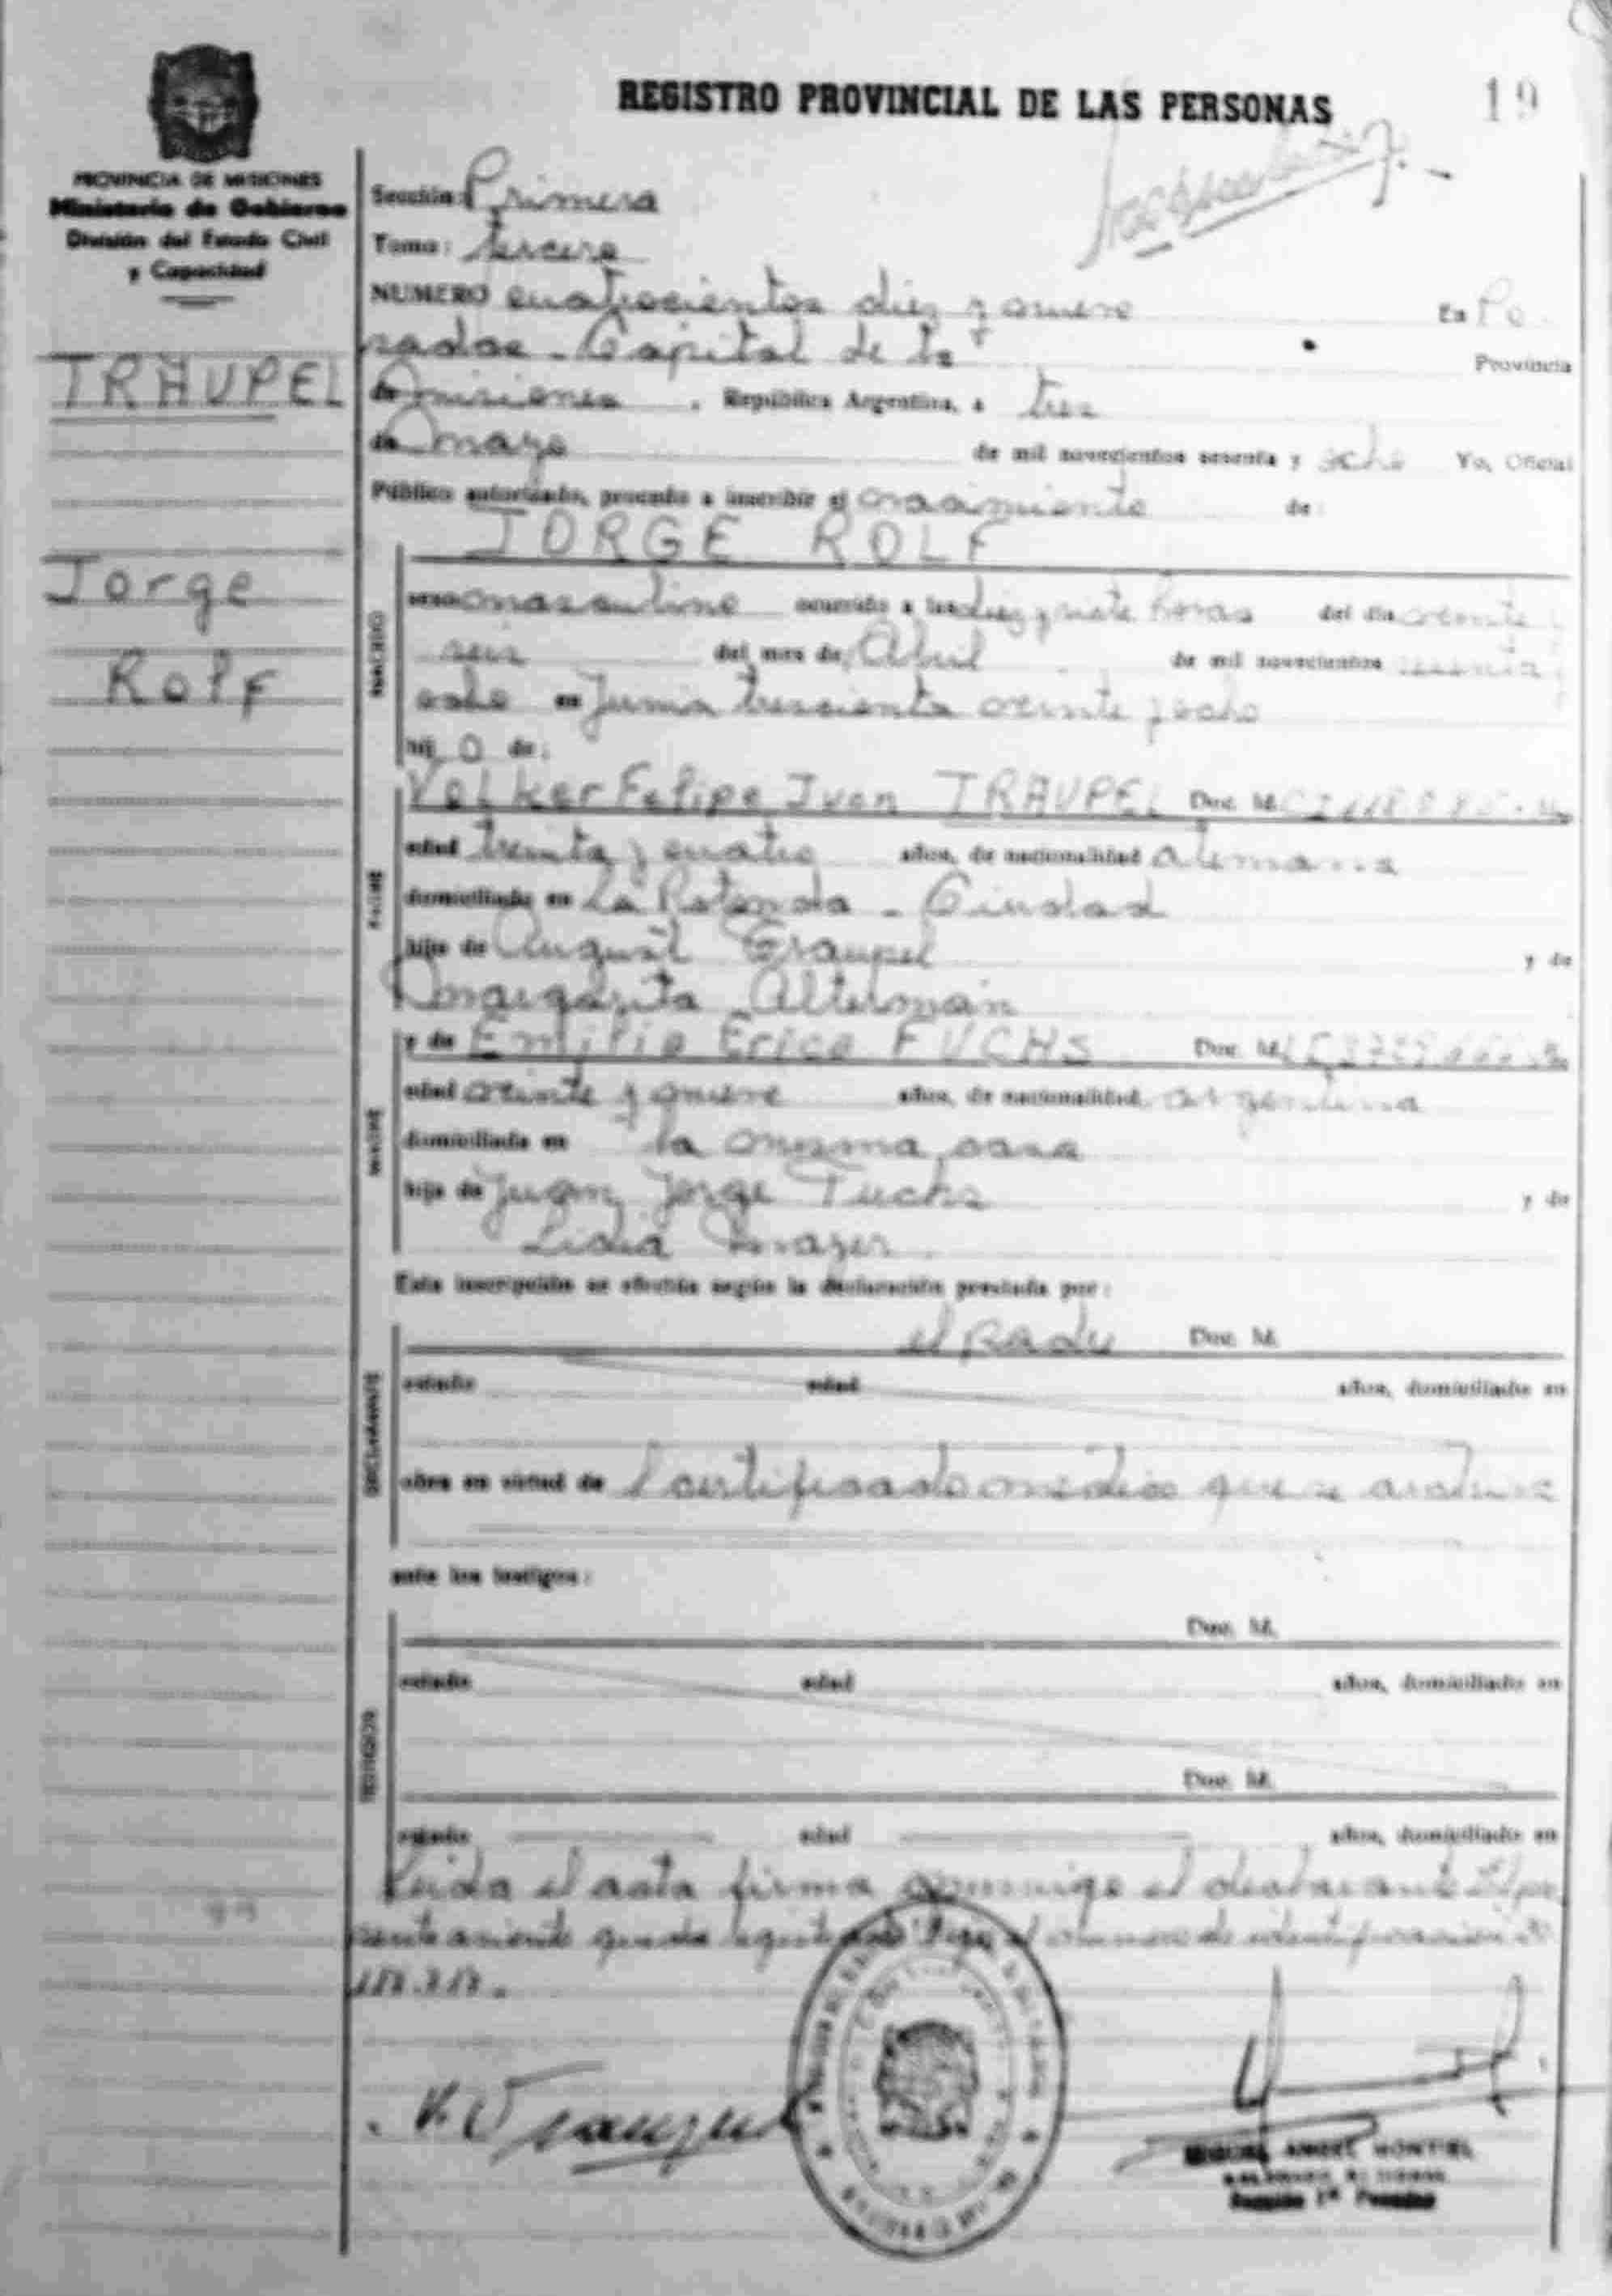 REGISTRO PROVINCIAL DE LAS PERSONAS
19
PROVINCIA DE MISIONES
Ministerio de Gobierno
División del Estado Civil
y Capacidad
TRAUPEL
Jorge
Rolf
Sección: Primera
Tomo: tercero
NUMERO cuatrocientos diez y nueve En Po
sadas - Capital de la Provincia
de Misiones, República Argentina, a tres
de mayo de mil novecientos sesenta y ocho Yo, Oficial
Público autorizado, procedo a inscribir el nacimiento de:
JORGE ROLF
NACIDO
sexo masculino ocurrido a las diez y siete horas del día veinte
seis del mes de Abril de mil novecientos sesenta y
ocho en Junín trescientos veinte y ocho
hij o de:
PADRE
Volker Felipe Ivan TRAUPEL Doc. M.
edad treinta y cuatro años, de nacionalidad alemana
domiciliado en La Rotonda - Ciudad
hijo de August Traupel y de
Margarita Alterman
MADRE
y de Emilia Erica FUCHS Doc. M.
edad veinte y nueve años, de nacionalidad argentina
domiciliada en la misma casa
hija de Juan Jorge Fuchs y de
Lidia
Esta inscripción se efectúa según la declaración prestada por:
DECLARANTE
el padre Doc. M.
estado edad años, domiciliado en
obra en virtud de l certificado médico que se archiva
ante los testigos:
TESTIGOS
Doc. M.
estado edad años, domiciliado en
Doc. M.
estado edad años, domiciliado en
Leida el acta firma conmigo el declarante El pre
sente asiento queda registrado bajo el número de identificación
MIGUEL ANGEL MONTIEL
Sección 1ª Posadas